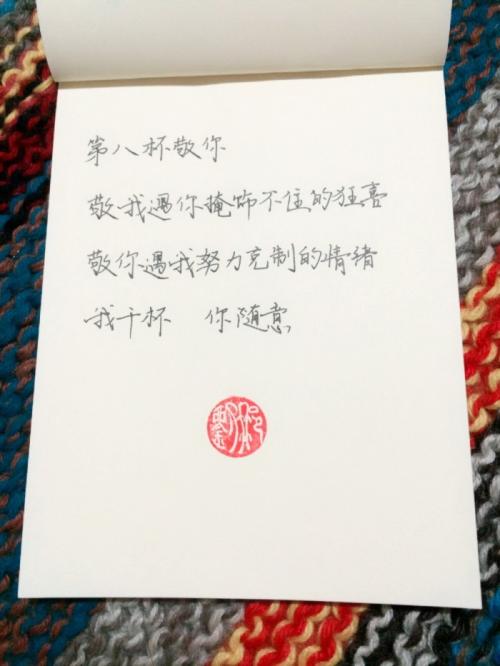 第八杯敬你
敬我遇你掩饰不住的狂喜
敬你遇我努力克制的情绪
我干杯 你随意